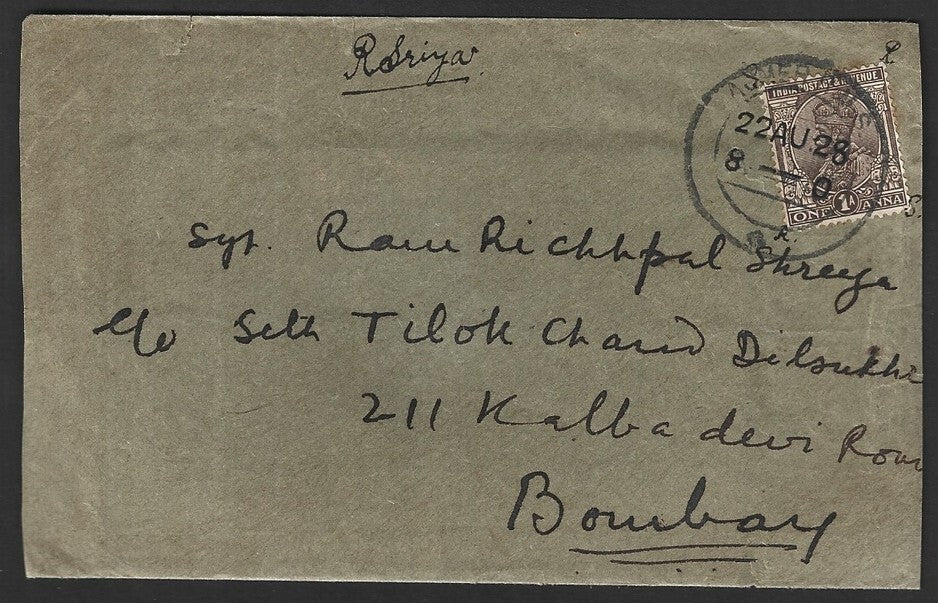 R Sriya
R
INDIA POSTAGE & REVENUE
22 AU.28
8 — 0
ONE 1A ANNA
S.
R.
Syt. Ram Richhpal Shreeya
C/o Seth Tilok Chand Dilsukhr
211 Kalba devi Road
Bombay